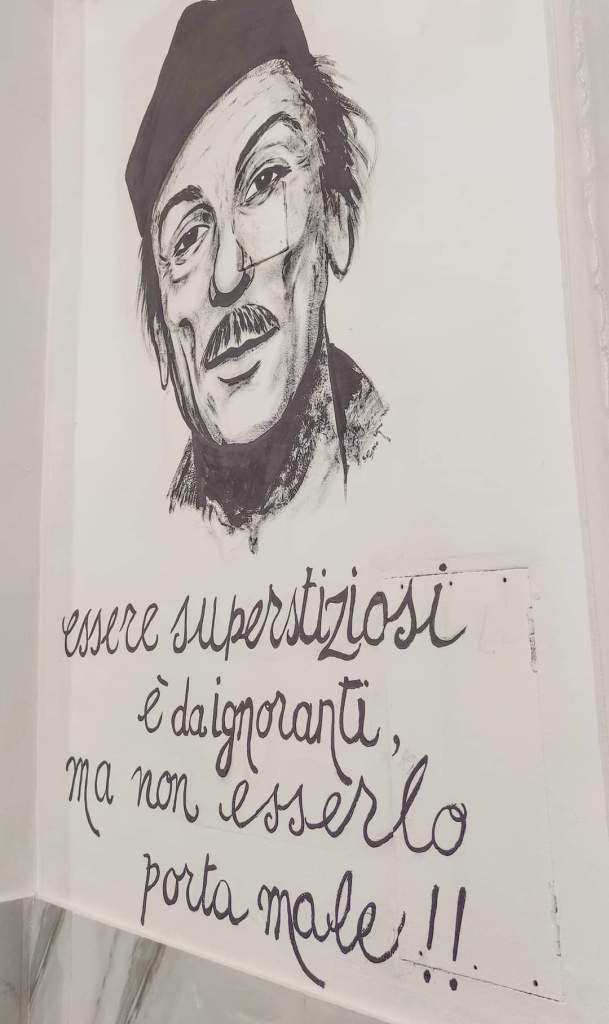 essere superstiziosi
è da ignoranti,
ma non esserlo
porta male!!